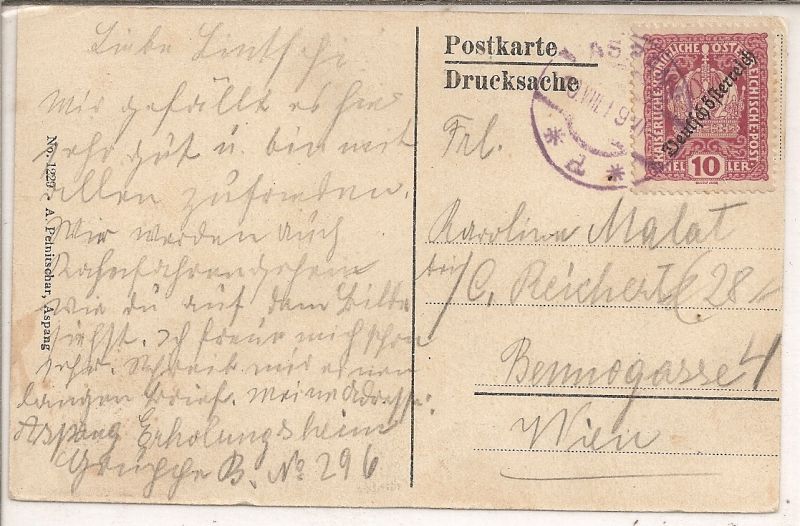 Liebe Lintschi
Wir gefällt es hier
sehr gut u. bin mit
allen zufrieden.
Wir werden auch
Kahnfahren gehen
wie du auf dem Bilde
siehst. Ich freue mich schon
sehr. Schreib mir einen
langen Brief. Meine Adresse:
Aspang Erholungsheim
Gruppe B. No 296
No. 1229 A. Peinitschar, Aspang
Postkarte
Drucksache
Frl.
Karolina Malat
bei C. Reichert 28
Bennogasse 4
Wien
KAISERLICHE KÖNIGLICHE ÖSTERREICHISCHE POST
Deutschösterreich
10
HELLER
AS
* d *